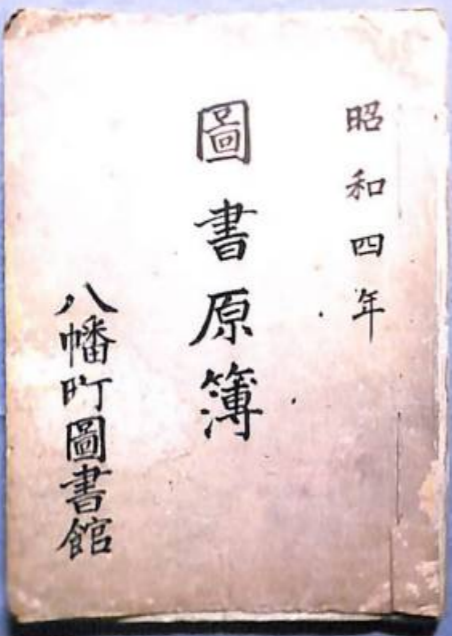 昭和四年
圖書原簿
八幡町圖書館